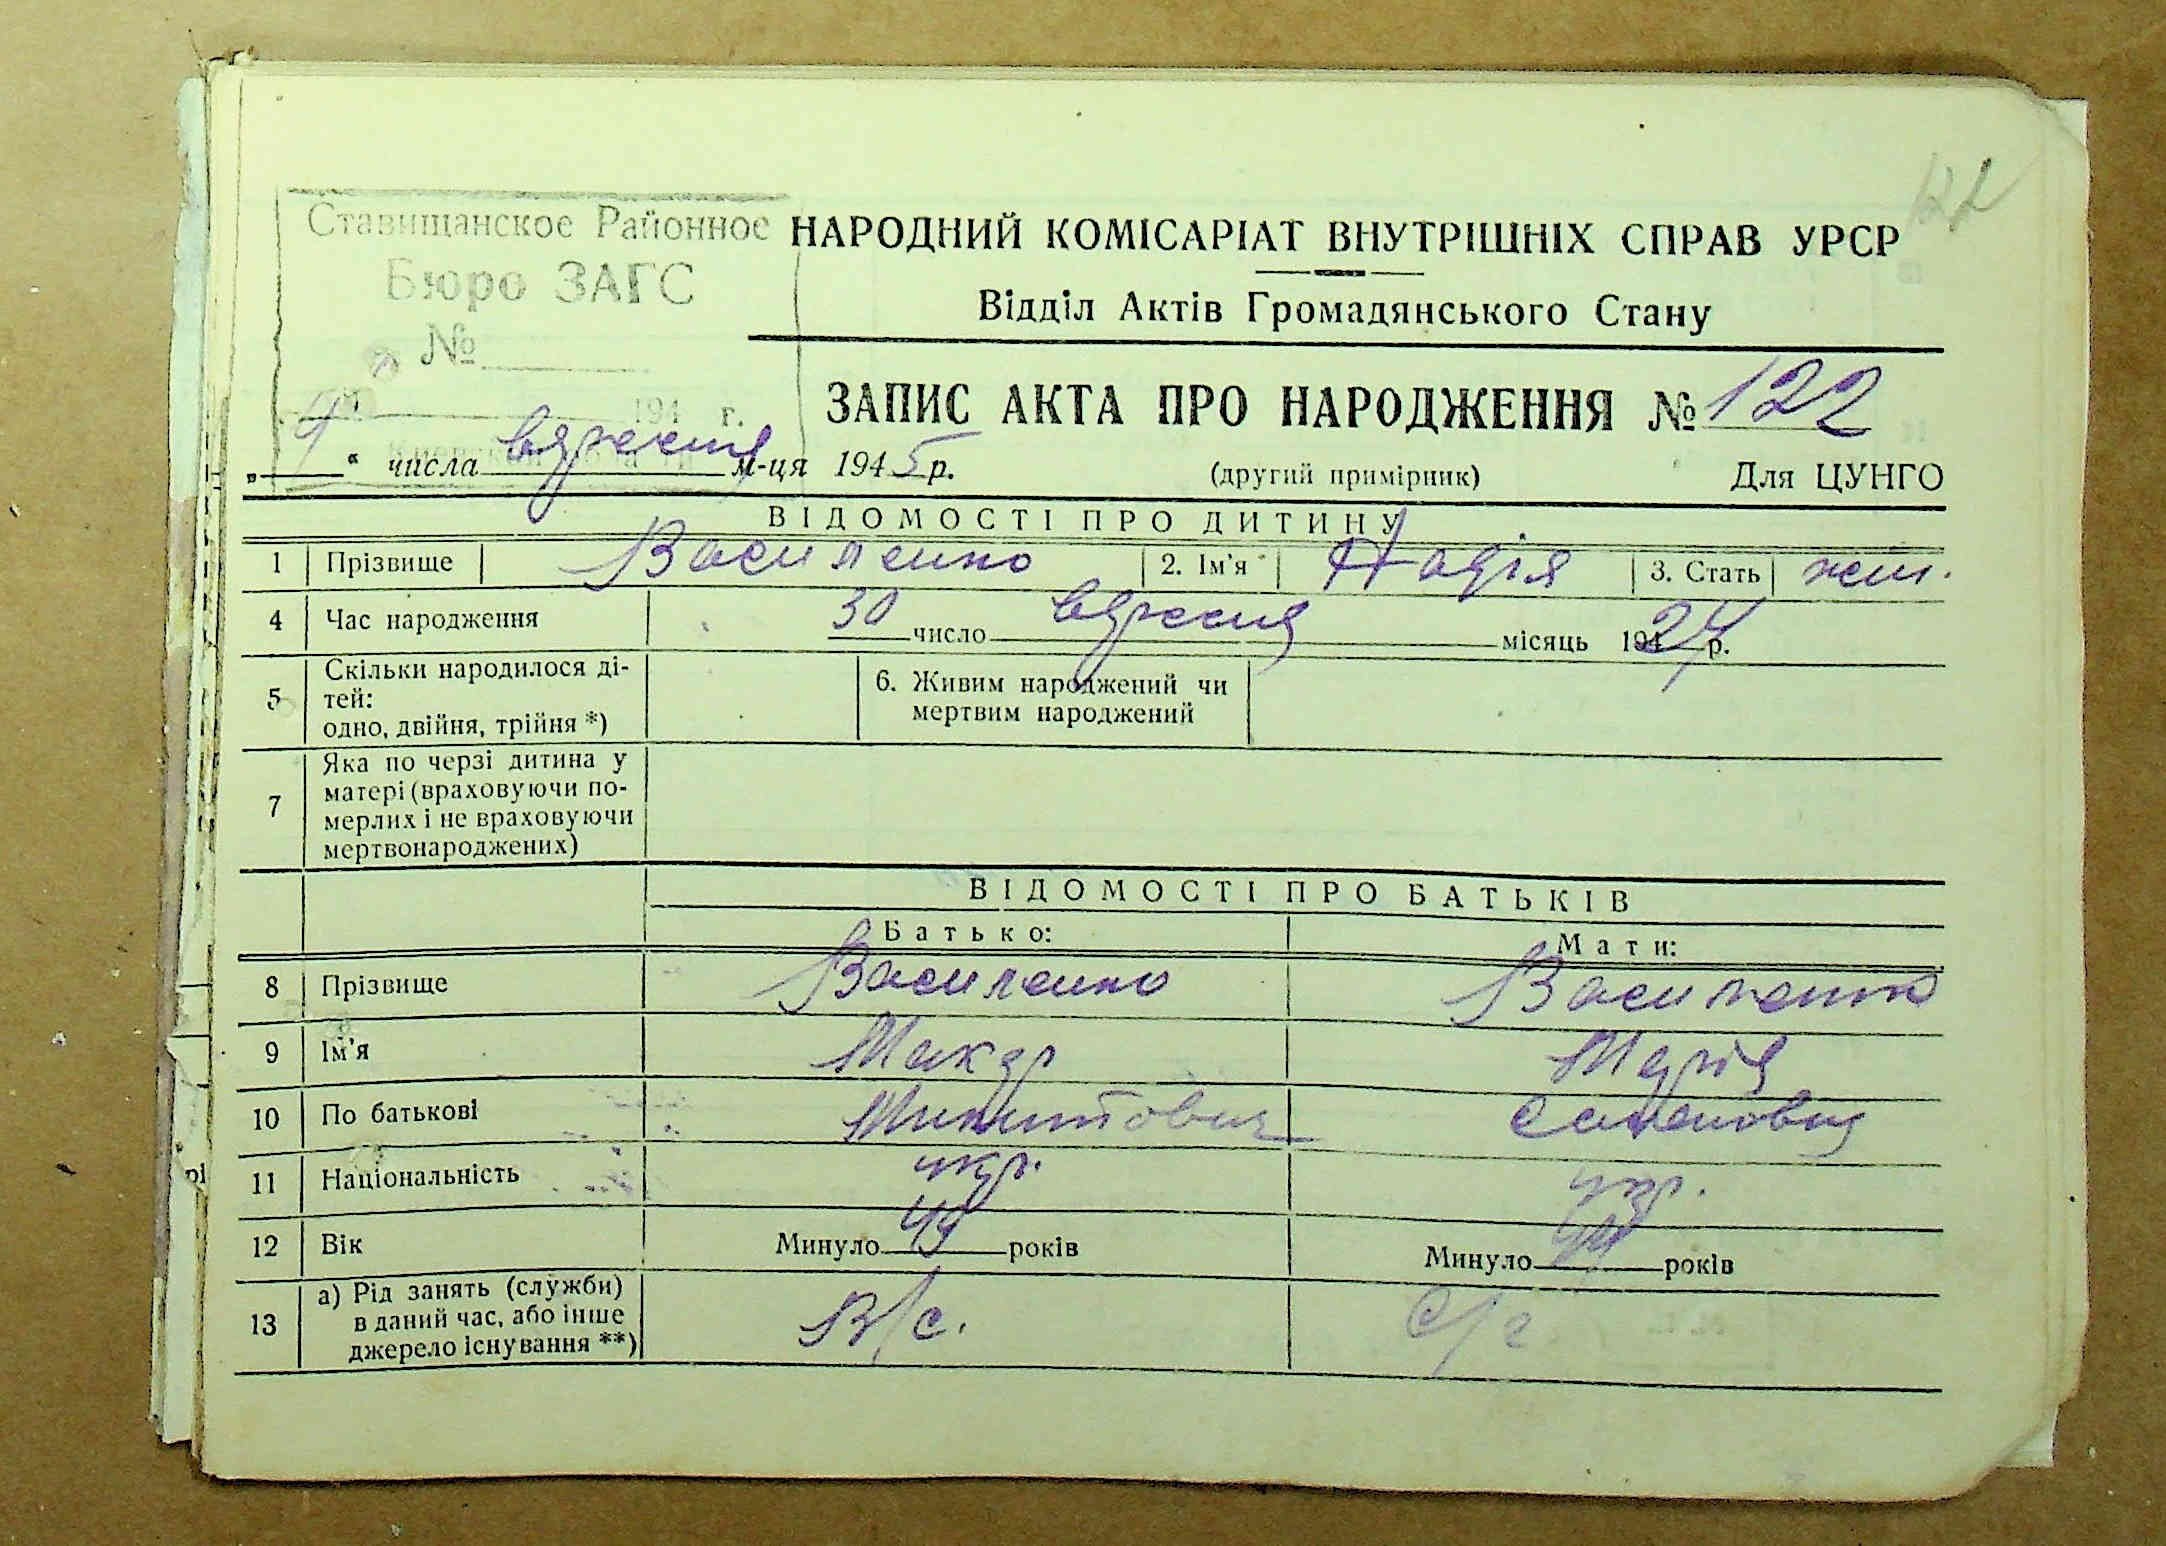 122
Ставищанское Районное
Бюро ЗАГС
№
194 г.
НАРОДНИЙ КОМІСАРІАТ ВНУТРІШНІХ СПРАВ УРСР
Відділ Актів Громадянського Стану
ЗАПИС АКТА ПРО НАРОДЖЕННЯ № 122
„ “ числа вересня м-ця 1945 р. (другий примірник) Для ЦУНГО
ВІДОМОСТІ ПРО ДИТИНУ
1 Прізвище Василенко 2. Ім'я Надія 3. Стать жін.
4 Час народження 30 число вересня місяць 1924 р.
5 Скільки народилося ді-
тей:
одно, двійня, трійня *)
6. Живим народжений чи
мертвим народжений
7 Яка по черзі дитина у
матері (враховуючи по-
мерлих і не враховуючи
мертвонароджених)
ВІДОМОСТІ ПРО БАТЬКІВ
Батько: Мати:
8 Прізвище Василенко Василенко
9 Ім'я Макар Марія
10 По батькові Микитович Семеновна
11 Національність укр. укр.
12 Вік Минуло 49 років Минуло 44 років
13 а) Рід занять (служби)
в даний час, або інше
джерело існування **)
В/с. С/г